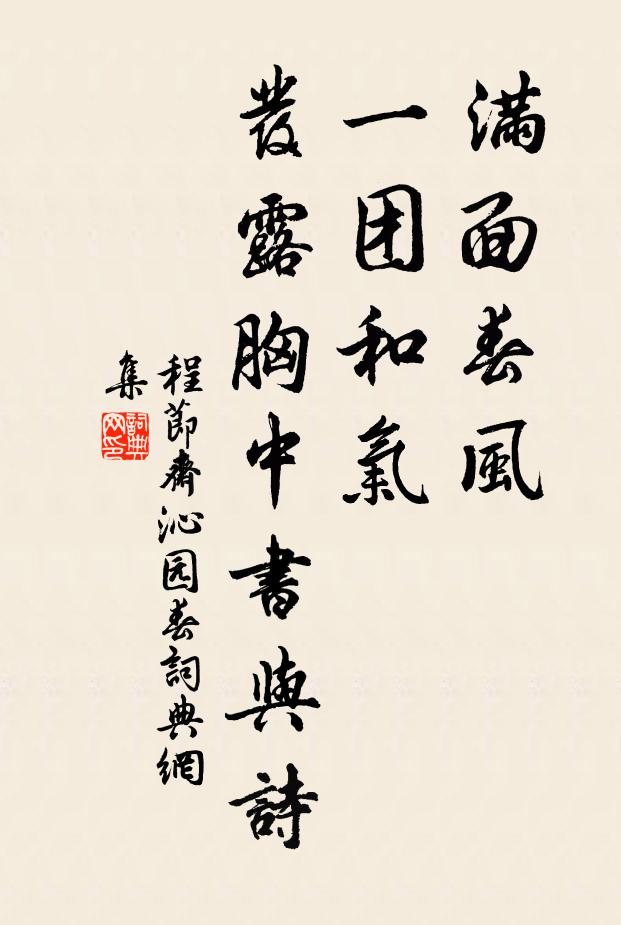 满面春風
一团和氣
發露胸中書與詩
程節齋沁园春詞典網
集
詞典
网印